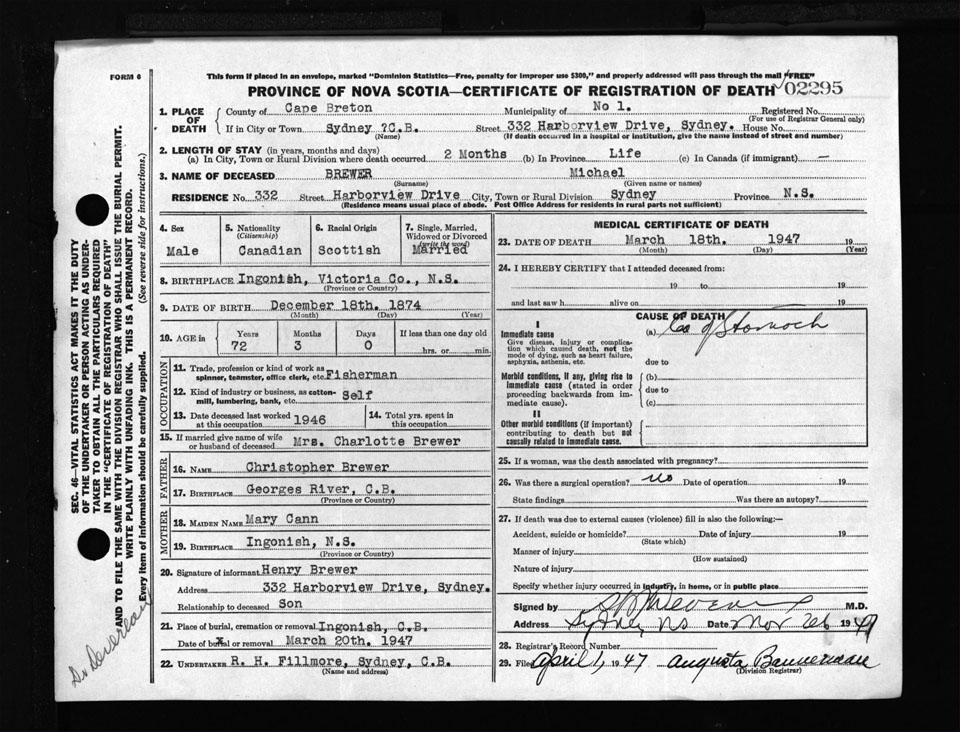 FORM 6
This form if placed in an envelope, marked "Dominion Statistics—Free, penalty for improper use $300," and properly addressed will pass through the mail "FREE"
PROVINCE OF NOVA SCOTIA—CERTIFICATE OF REGISTRATION OF DEATH 02295
1. PLACE OF DEATH
County of Cape Breton Municipality of No 1. Registered No.
(For use of Registrar General only)
If in City or Town Sydney ?C.B. Street 332 Harborview Drive, Sydney. House No.
(Name) (If death occurred in a hospital or institution, give the name instead of street and number)
2. LENGTH OF STAY (in years, months and days)
(a) In City, Town or Rural Division where death occurred 2 Months (b) In Province Life (c) In Canada (if immigrant) —
3. NAME OF DECEASED BREWER Michael
(Surname) (Given name or names)
RESIDENCE No. 332 Street Harborview Drive City, Town or Rural Division Sydney Province N.S.
(Residence means usual place of abode. Post Office Address for residents in rural parts not sufficient)
4. Sex
Male
5. Nationality
(Citizenship)
Canadian
6. Racial Origin
Scottish
7. Single, Married, Widowed or Divorced
(write the word)
Married
8. BIRTHPLACE Ingonish, Victoria Co., N.S.
(Province or Country)
9. DATE OF BIRTH December 18th. 1874
(Month) (Day) (Year)
10. AGE in
Years Months Days If less than one day old
72 3 0 hrs. or min.
OCCUPATION
11. Trade, profession or kind of work as
spinner, teamster, office clerk, etc. Fisherman
12. Kind of industry or business, as cotton-
mill, lumbering, bank, etc. Self
13. Date deceased last worked
at this occupation 1946
14. Total yrs. spent in
this occupation
15. If married give name of wife
or husband of deceased Mrs. Charlotte Brewer
FATHER
16. NAME Christopher Brewer
17. BIRTHPLACE Georges River, C.B.
(Province or Country)
MOTHER
18. MAIDEN NAME Mary Cann
19. BIRTHPLACE Ingonish, N.S.
(Province or Country)
20. Signature of informant Henry Brewer
Address 332 Harborview Drive, Sydney.
Relationship to deceased Son
21. Place of burial, cremation or removal Ingonish, C.B.
Date of burial or removal March 20th. 1947
22. UNDERTAKER R. H. Fillmore, Sydney, C.B.
(Name and address)
MEDICAL CERTIFICATE OF DEATH
23. DATE OF DEATH March 18th. 1947 19
(Month) (Day) (Year)
24. I HEREBY CERTIFY that I attended deceased from:
19 to 19
and last saw h alive on 19
CAUSE OF DEATH
I
Immediate cause (a) Ca of Stomach
Give disease, injury or complica-
tion which caused death, not the
mode of dying, such as heart failure,
asphyxia, asthenia, etc.
due to
Morbid conditions, if any, giving rise to (b)
immediate cause (stated in order
proceeding backwards from im-
mediate cause).
due to
(c)
II
Other morbid conditions (if important)
contributing to death but not
causally related to immediate cause.
25. If a woman, was the death associated with pregnancy?
26. Was there a surgical operation? no Date of operation 19
State findings Was there an autopsy?
27. If death was due to external causes (violence) fill in also the following:—
Accident, suicide or homicide? Date of injury 19
(State which)
Manner of injury
(How sustained)
Nature of injury
Specify whether injury occurred in industry, in home, or in public place
Signed by M.D.
Address Sydney NS Date 1947
28. Registrar's Record Number
29. Filed April 1, 1947 Augusta Bannerman
(Division Registrar)
SEC. 46—VITAL STATISTICS ACT MAKES IT THE DUTY
OF THE UNDERTAKER OR PERSON ACTING AS UNDER-
TAKER TO OBTAIN ALL THE PARTICULARS REQUIRED
IN THE "CERTIFICATE OF REGISTRATION OF DEATH"
AND TO FILE THE SAME WITH THE DIVISION REGISTRAR WHO SHALL ISSUE THE BURIAL PERMIT.
WRITE PLAINLY WITH UNFADING INK. THIS IS A PERMANENT RECORD.
Every item of information should be carefully supplied. (See reverse side for instructions.)
Dr Devereau